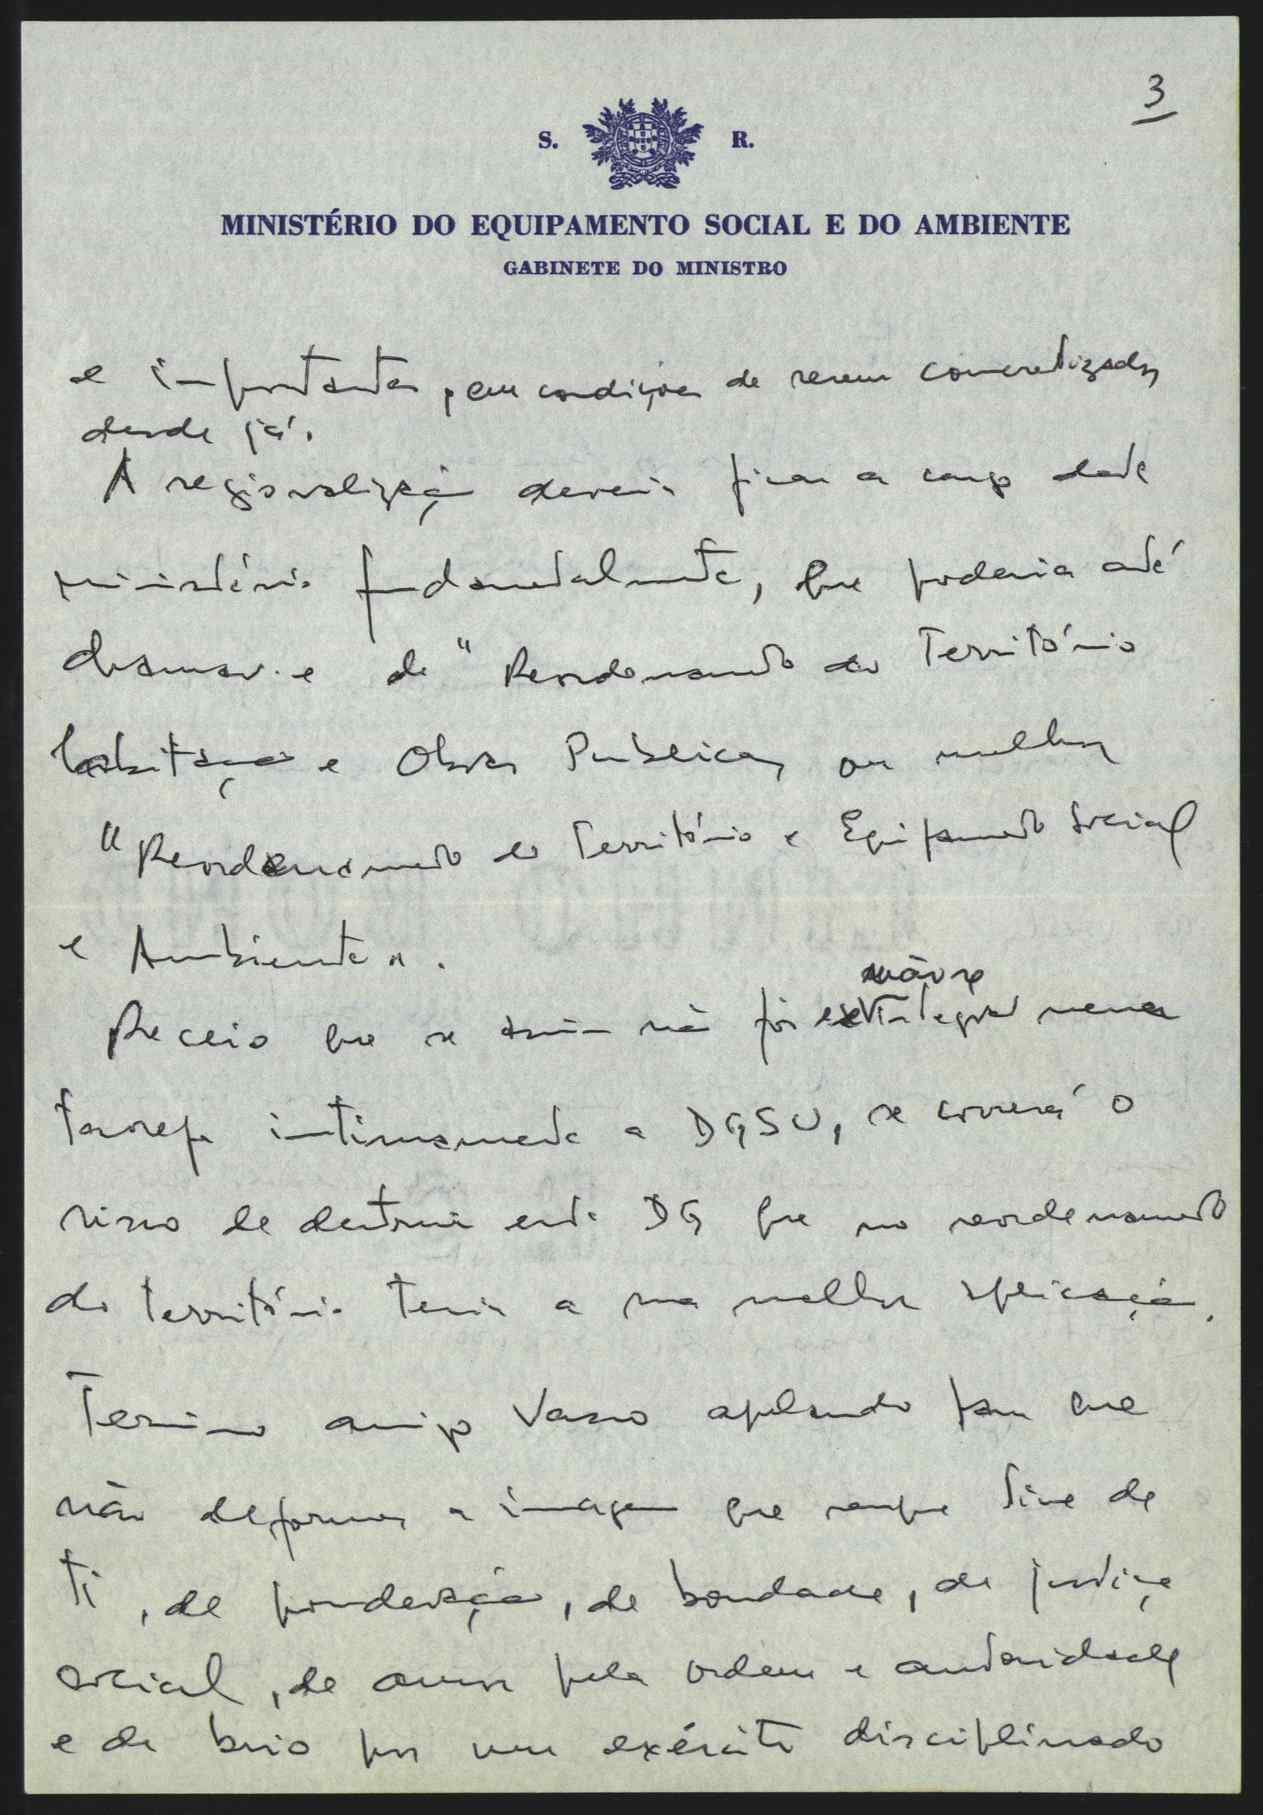 3
S. R.
MINISTÉRIO DO EQUIPAMENTO SOCIAL E DO AMBIENTE
GABINETE DO MINISTRO
e importantes, em condições de serem concretizados
desde já.
A regionalização deveria ficar a cargo deste
ministério fundamentalmente, que poderia até
chamar-se de "Reordenamento do Território
habitação e Obras Publicas, ou melhor
"Reordenamento do Território e Equipamento Social
e Ambiente".
Receio que se assim não for
não se
integrad nessa
tarefa intimamente a DGSU, se correrá o
risco de destruir esta DG que no reordenamento
do território teria a sua melhor aplicação.
Termino amigo Vasco apelando para que
não deformes a imagem que sempre tive de
ti, de ponderação, de bondade, de justiça
social, de amor pela ordem e autoridade
e de brio por um exército disciplinado